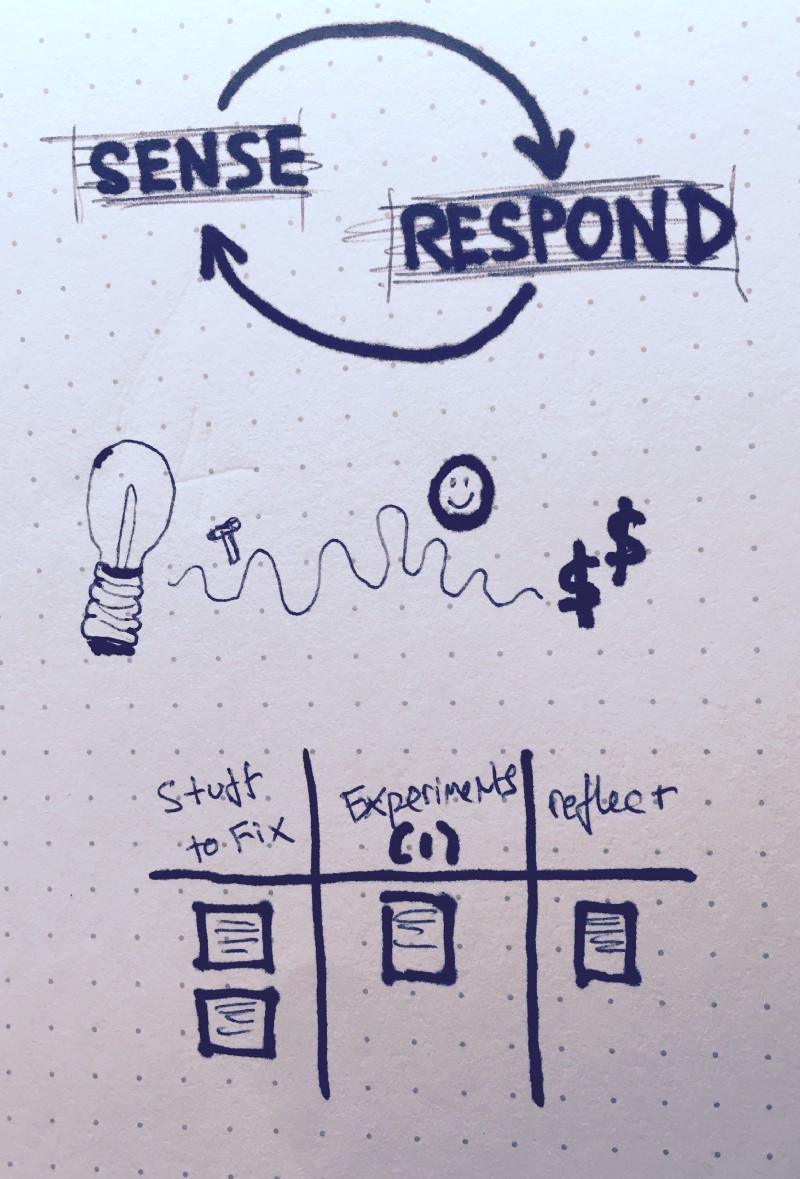 SENSE
RESPOND
$ $
Stuff to Fix
Experiments (1)
reflect